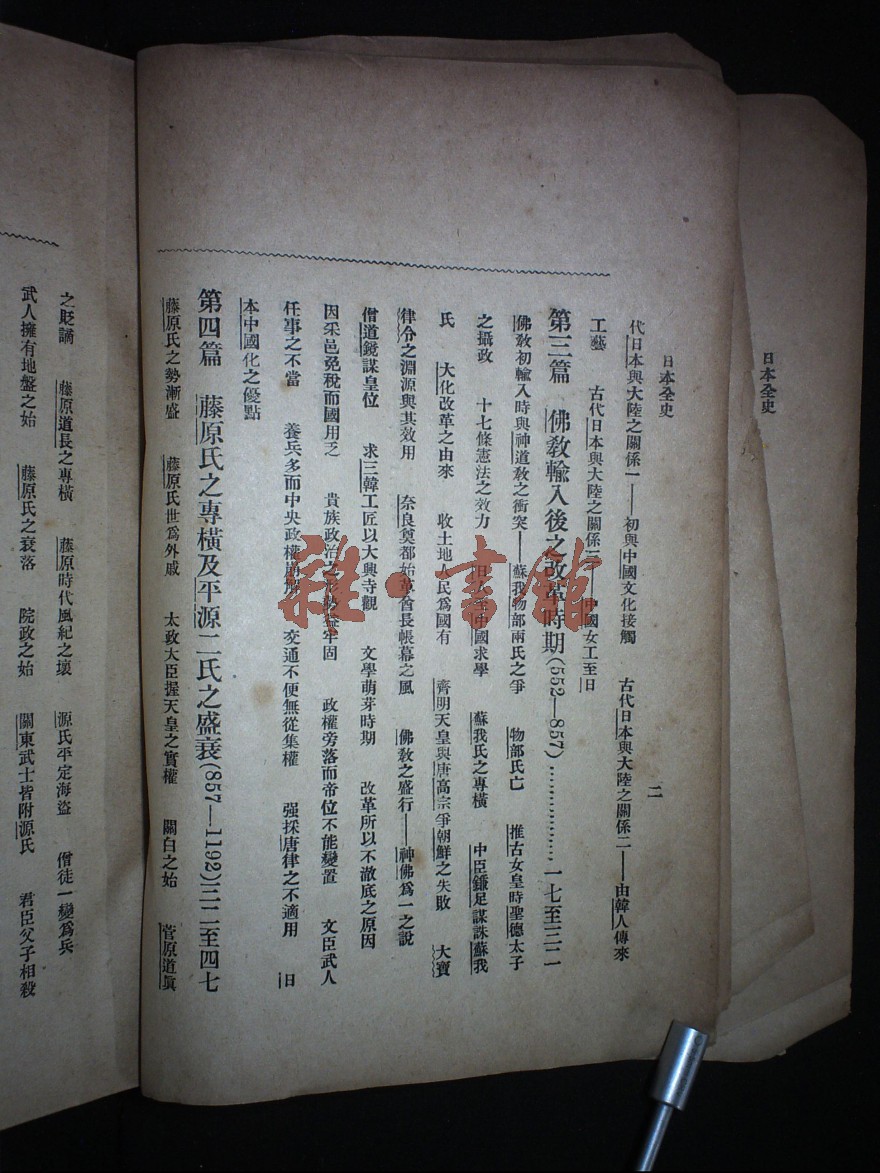 日本全史
日本全史
二
代日本與大陸之關係一——初與中國文化接觸 古代日本與大陸之關係二——由韓人傳來
工藝 古代日本與大陸之關係三——中國女工至日
第三篇 佛敎輸入後之改革時期(552—857)………………一七至三二
佛敎初輸入時與神道敎之衝突——蘇我物部兩氏之爭 物部氏亡 推古女皇時聖德太子
之攝政 十七條憲法之效力 中國求學 蘇我氏之專橫 中臣鎌足謀誅蘇我
氏 大化改革之由來 收土地人民爲國有 齊明天皇與唐高宗爭朝鮮之失敗 大寶
律令之淵源與其效用 奈良奠都始革酋長帳幕之風 佛敎之盛行——神佛爲一之說
僧道鏡謀皇位 求三韓工匠以大興寺觀 文學萌芽時期 改革所以不澈底之原因
因采邑免稅而國用乏 貴族政治之 牢固 政權旁落而帝位不能變置 文臣武人
任事之不當 養兵多而中央政權崩 交通不便無從集權 强採唐律之不適用 日
本中國化之優點
第四篇 藤原氏之專橫及平源二氏之盛衰(857—1192)三二至四七
藤原氏之勢漸盛 藤原氏世爲外戚 太政大臣握天皇之實權 關白之始 菅原道眞
之貶謫 藤原道長之專橫 藤原時代風紀之壞 源氏平定海盜 僧徒一變爲兵
武人擁有地盤之始 藤原氏之衰落 院政之始 關東武士皆附源氏 君臣父子相殺
雜·書館